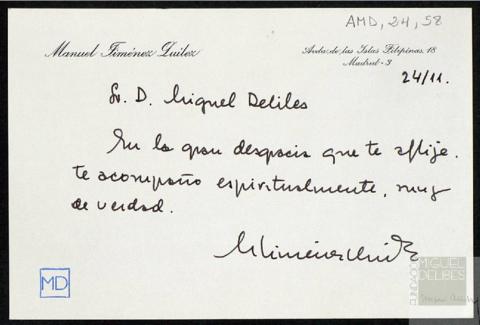 AMD, 24, 58
Manuel Jiménez Quílez
Avda. de las Islas Filipinas, 18
Madrid-3
24/11.
Sr. D. Miguel Delibes
En la gran desgracia que te aflije.
te acompaño espiritualmente, muy
de verdad.
MD
FUNDACIÓN
MIGUEL
DELIBES